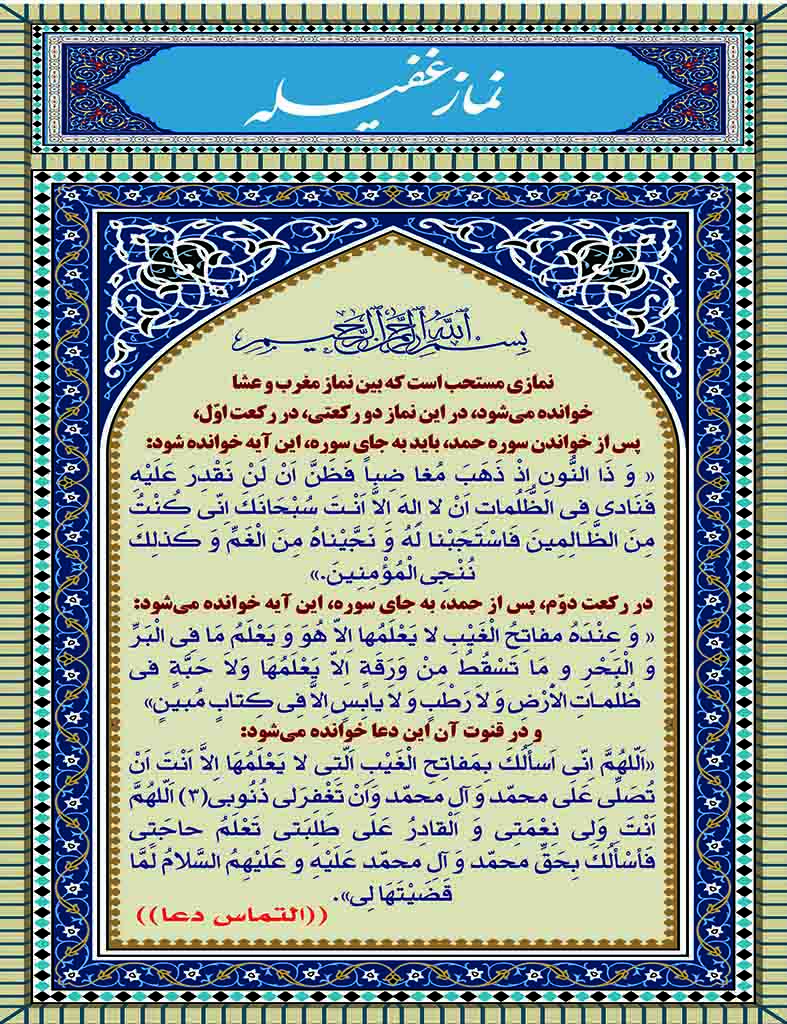 نماز غفیله
بسم الله الرحمن الرحیم
نمازی مستحب است که بین نماز مغرب و عشا
خوانده می‌شود، در این نماز دو رکعتی، در رکعت اوّل،
پس از خواندن سوره حمد، باید به جای سوره، این آیه خوانده شود:
« وَ ذَا النُّونِ اِذْ ذَهَبَ مُغا ضباً فَظَنَّ اَنْ لَنْ نَقْدِرَ عَلَیْهِ
فَنادی فِی الظُّلُماتِ اَنْ لا اِلهَ اِلاَّ اَنْتَ سُبْحَانَكَ اِنّی کُنْتُ
مِنَ الظَّالِمِینَ فَاسْتَجَبْنا لَهُ وَ نَجَّیْناهُ مِنَ الْغَمِّ وَ کَذلِكَ
نُنْجِی الْمُؤْمِنِینَ.»
در رکعت دوّم، پس از حمد، به جای سوره، این آیه خوانده می‌شود:
« وَ عِنْدَهُ مفاتِحُ الْغَیْبِ لا یَعْلَمُها اِلاّ هُوَ وَ یَعْلَمُ مَا فِی الْبَرِّ
وَ الْبَحْرِ و مَا تَسْقُطُ مِنْ وَرَقَةٍ اِلاّ یَعْلَمُهَا وَلا حَبَّةٍ فی
ظُلُمـاتِ الاَرْضِ وَ لا رَطْبٍ وَ لا یابِسٍ اِلاَّ فی کِتابٍ مُبینٍ»
و در قنوت آن این دعا خوانده می‌شود:
«اَللّهُمَّ اِنّی اَسأَلُكَ بِمَفاتِحِ الْغَیْبِ الَّتی لا یَعْلَمُهَا اِلاَّ اَنْتَ اَنْ
تُصَلی عَلی محمّد وَ آلِ محمّد وَاَنْ تَغْفِرَلی ذُنُوبی(۳) اَللّهُمَّ
اَنْتَ وَلِی نِعْمَتِی وَ اَلْقادِرُ عَلی طَلِبَتی تَعْلَمُ حاجَتِی
فَأَسْأَلُكَ بِحَقِّ محمّد وَ آلِ محمّد عَلَیْهِ و عَلَیْهِمُ السَّلامُ لَمَّا
قَضَیْتَهَا لِی».
((التماس دعا))